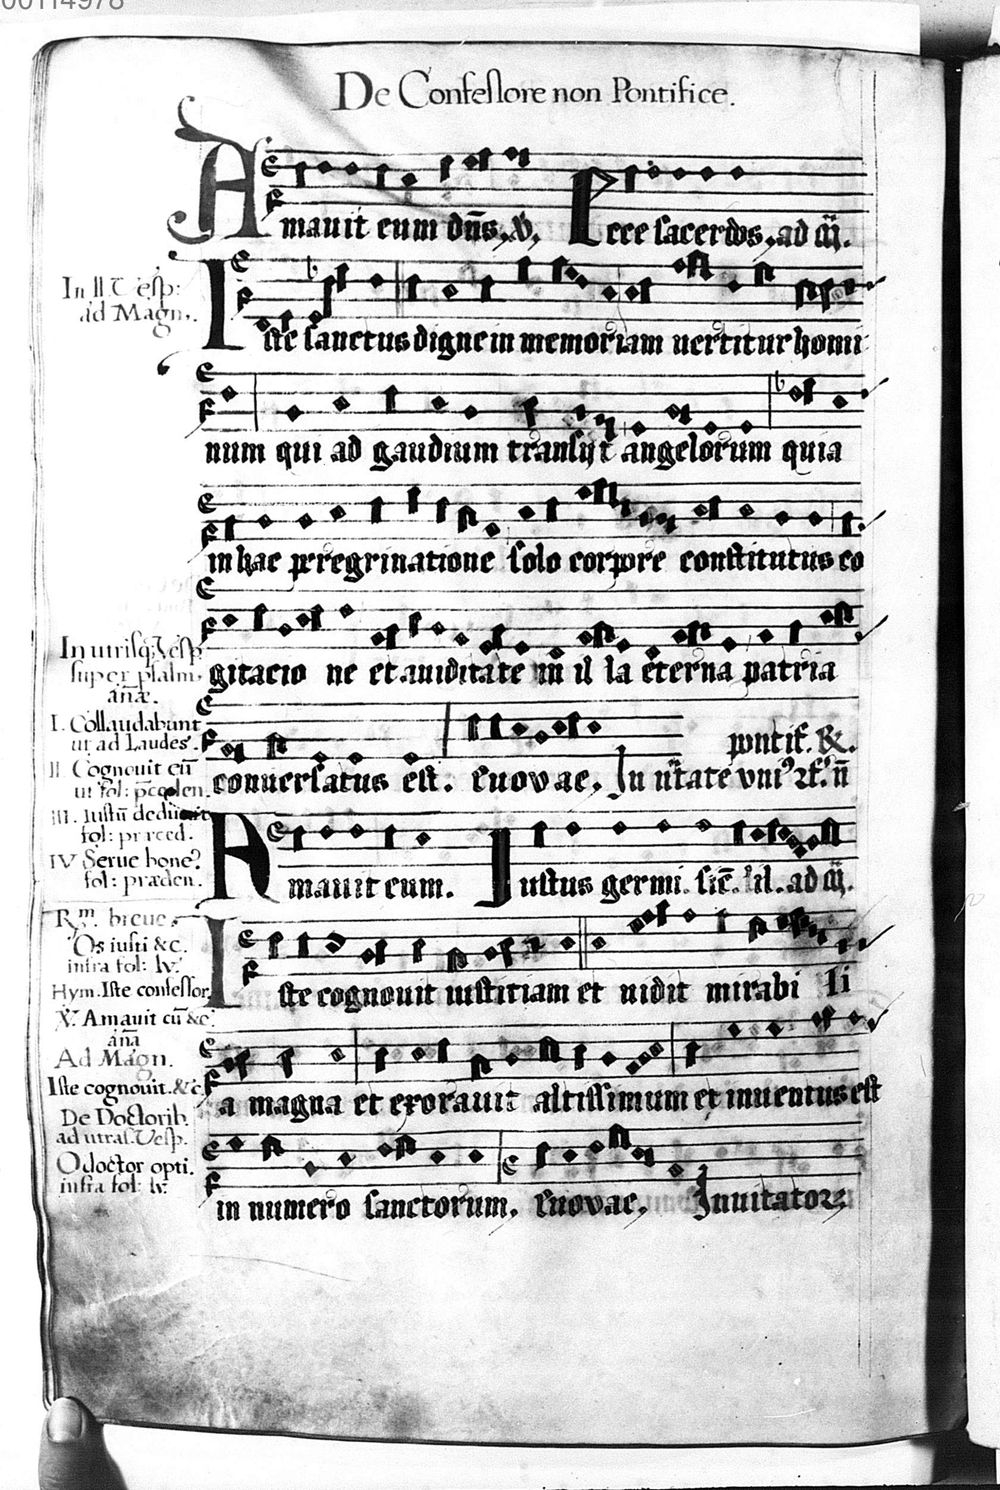 00114978
De Confessore non Pontifice.
Amauit eum dn̄s, ℣, Ecce sacerdos, ad m̄.
In II Vesp:
ad Magn.
Iste sanctus digne in memoriam uertitur homi
num qui ad gaudium transijt angelorum quia
in hac peregrinatione solo corpore constitutus co
gitacio ne et auiditate in il la eterna patria
conuersatus est. Euovae. In
pontif. &.
Amauit eum. Justus germi. sic̄. lil. ad m̄.
Iste cognouit iustitiam et uidit mirabi li
a magna et exorauit altissimum et inuentus est
in numero sanctorum, Euovae, Inuitator
In utrisq. Vesp
super psalm.
añæ.
I. Collaudabunt
ut ad Laudes.
II Cognouit eū
ut fol:
III. Iustū deduxit
fol: præced.
IV Serue bone
fol: præden.
Rm. breue
Os iusti &c.
infra fol: lv.
Hym. Iste confessor
℣. Amauit eū &c
aña
Ad Magn.
Iste cognouit. &c
De Doctorib.
ad utras. Vesp.
O doctor opti.
infra fol: lv.